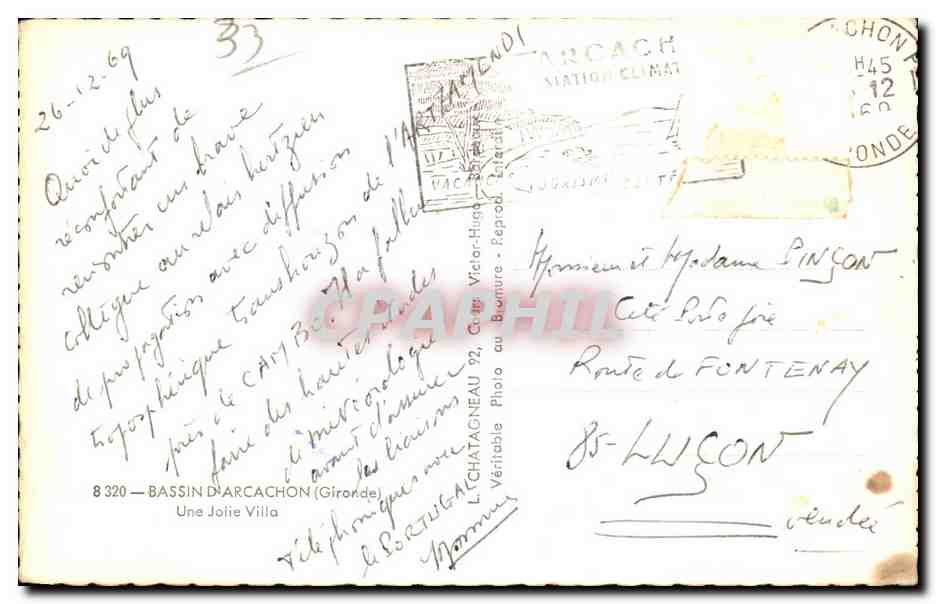 33
26-12-69
Quoi de plus
réconfortant de
rencontrer un brave
collègue au relais hertzien
de propagation avec diffusion
troposphérique transhorizon de l'ARTZAMENDI
près de CAMBO. Il a fallu
faire des hautes études
de météorologie
avant d'assurer
les liaisons
téléphoniques avec
le PORTUGAL
ARCACH
STATION CLIMAT
VACA
TOURISME
CHON P
H45
12
69
ONDE
Monsieur et Madame PINÇON
Cité
Route de FONTENAY
85-LUÇON
Vendée
8 320 — BASSIN D'ARCACHON (Gironde)
Une Jolie Villa
L. CHATAGNEAU 92, Cours Victor-Hugo - Bordeaux
Véritable Photo au Bromure - Reprod. Interdite
CPAPHIL